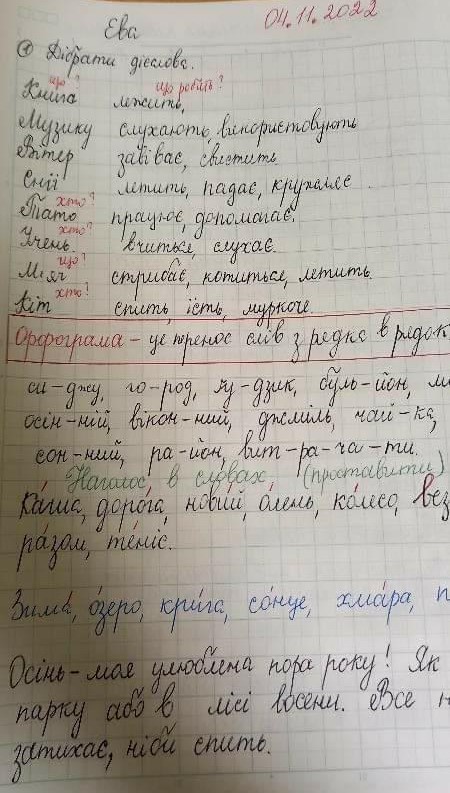 04.11.2022
Ева
① Дібрати дієслова.
що? що робить?
Книга лежить,
Музику слухають, використовують
Вітер завіває, свистить
Сніг летить, падає, кружляє.
хто?
Тато працює, допомагає.
хто?
Учень вчиться, слухає.
що?
М'яч стрибає, котиться, летить.
хто?
Кіт спить, їсть, муркоче.
Орфограма – це перенос слів з рядка в рядок
си-джу, го-род, ґу-дзик, буль-йон,
осін-ній, вікон-ний, джміль, чай-ка,
сон-ний, ра-йон, вит-ра-ча-ти.
Наголос в словах (проставити)
Ка́ша, доро́га, нови́й, о́лень, ко́лесо,
ра́зом, те́ніс.
Зима́, о́зеро, кри́га, со́нце, хма́ра,
Осінь – моя улюблена пора року! Як
парку або в лісі восени. Все
затихає, ніби спить.